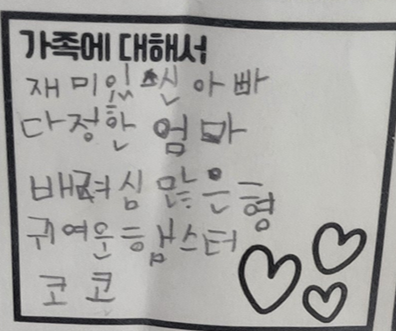 가족에 대해서
재미있으신 아빠
다정한 엄마
배려심 많은 형
귀여운 햄스터
코코